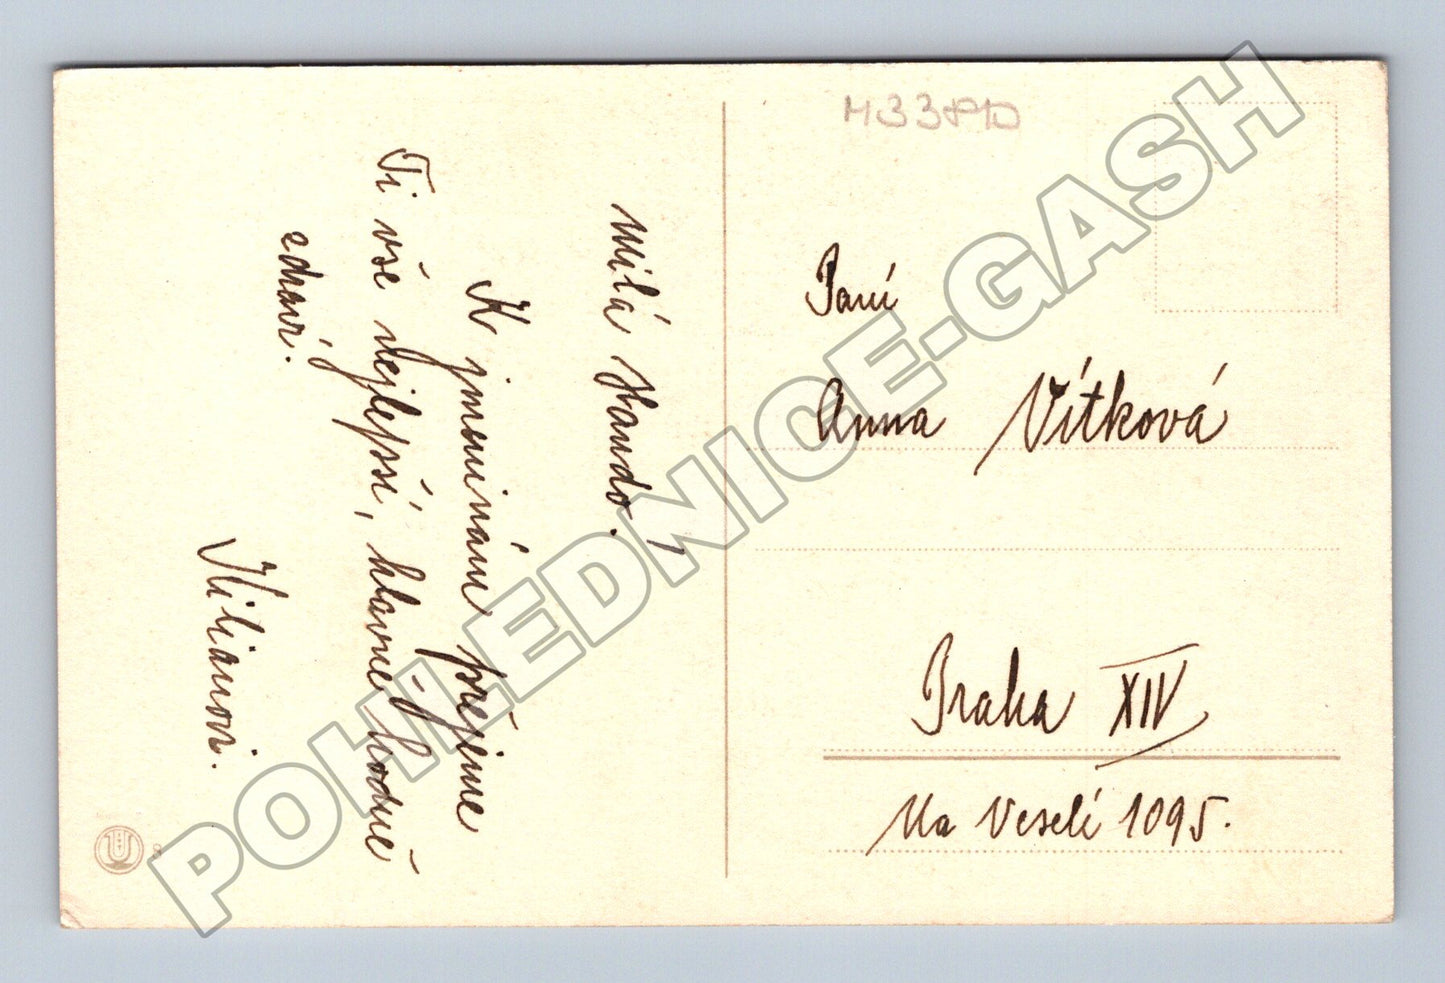 milá Hando!
K jmeninám přejeme
Ti vše nejlepší, hlavně hodně
zdraví.
Kilianovi.
Paní
Anna Vítková
Praha XIV
Na Veselí 1095.
8
POHLEDNICE-GASH